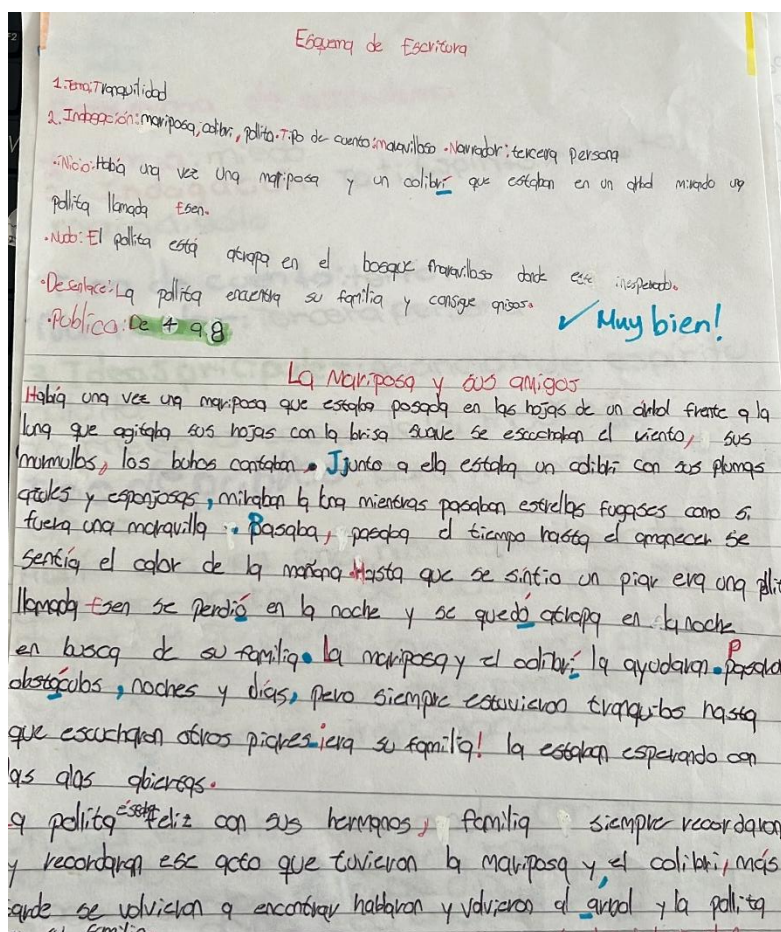 Esquema de Escritura
1. Tema: Tranquilidad
2. Indagación: mariposa, colibri, pollito. Tipo de cuento: maravilloso. Narrador: tercera persona
. Inicio: Había una vez una mariposa y un colibrí que estaban en un árbol mirado una
pollita llamada Esen.
. Nudo: El pollita está atrapa en el bosque maravilloso donde es inesperado.
. Desenlace: La pollita encuentra su familia y consigue amigos.
. Pública: De 4 a 8
✓ Muy bien!
La Mariposa y sus amigos
Había una vez una mariposa que estaba posada en las hojas de un árbol frente a la
luna que agitaba sus hojas con la brisa suave se escuchaban el viento, sus
murmullos, los buhos cantaban. Junto a ella estaba un colibri con sus plumas
azules y esponjosas, miraban la luna mientras pasaban estrellas fugases como si
fuera una maravilla. Pasaba, pasaba el tiempo hasta el amanecer se
sentía el calor de la mañana. Hasta que se sintio un piar era una pollit
llamada Esen se perdió en la noche y se quedó atrapa en la noche
en busca de su familia. la mariposa y el colibrí la ayudaron. Pasaro
obstáculos, noches y días, pero siempre estuvieron tranquilos hasta
que escucharon otros piares ¡era su familia! la estaban esperando con
las alas abiertas.
a pollita está feliz con sus hermanos, familia siempre recordaron
y recordaran ese acto que tuvieron la mariposa y el colibri, más
tarde se volvieron a encontrar hablaron y volvieron al árbol y la pollita
familia